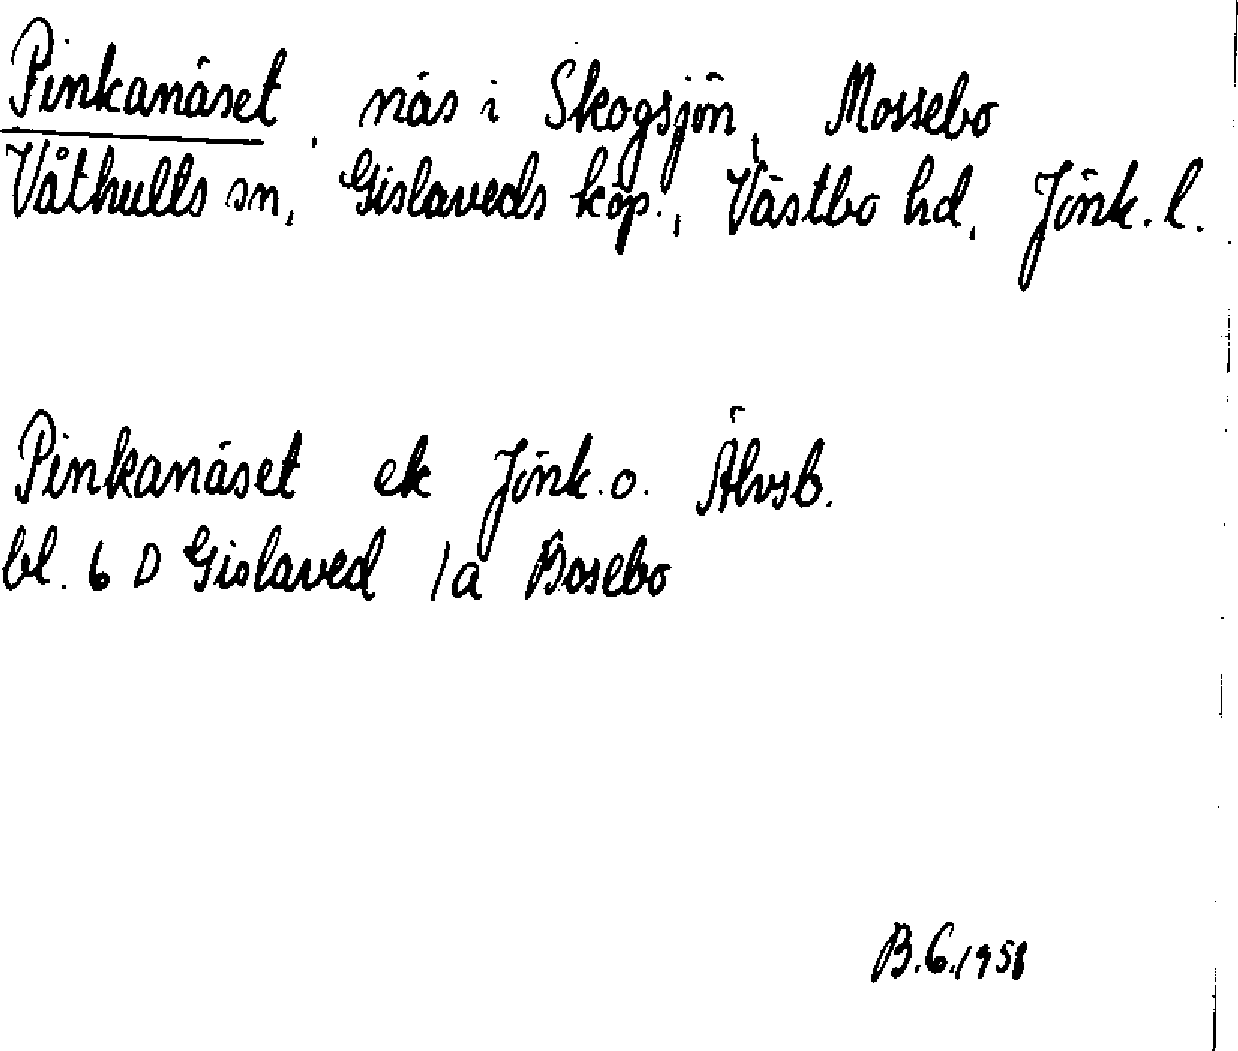 Pinkanäset, näs i Skogsjön, Mossebo
Våthults sn, Gislaveds köp., Västbo hd, Jönk. l.
Pinkanäset ek Jönk. o. Älvsb.
bl. 6 D Gislaved 1a Bosebo
B.G. 1958